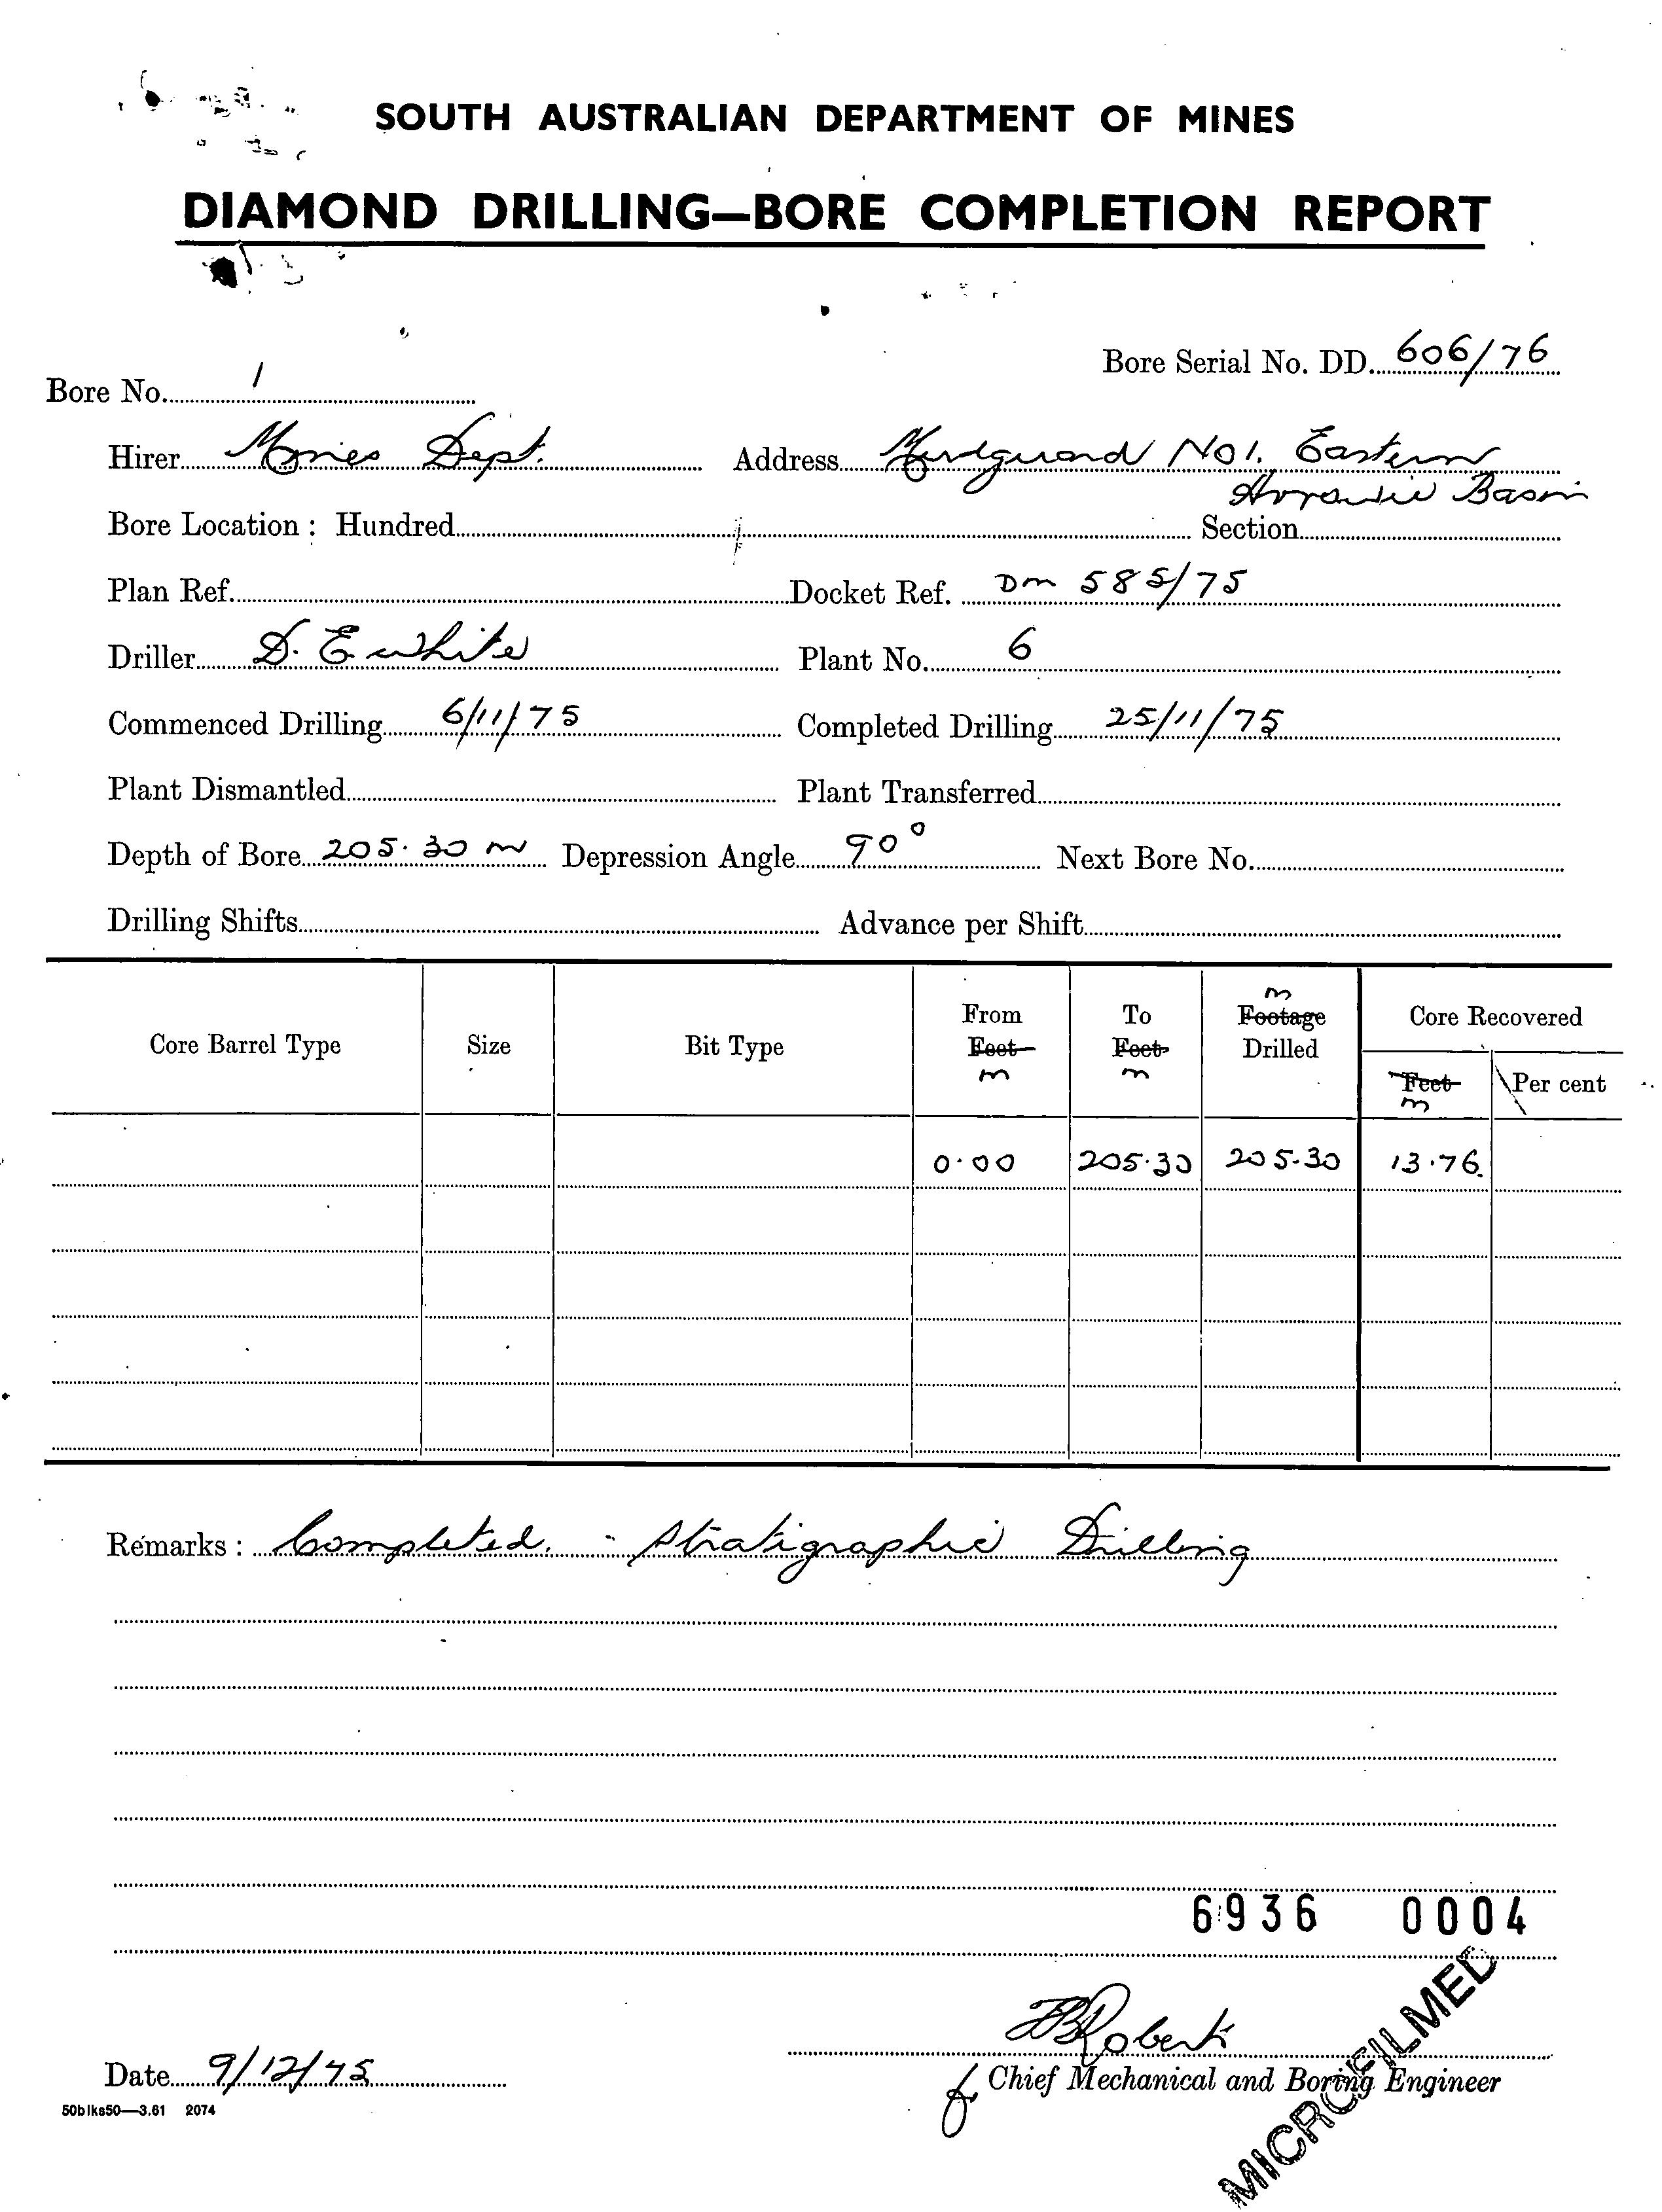 SOUTH AUSTRALIAN DEPARTMENT OF MINES
DIAMOND DRILLING—BORE COMPLETION REPORT
Bore Serial No. DD 606/76
Bore No. 1
Hirer Mines Dept. Address Mudguard No1. Eastern
Arrowie Basin
Bore Location : Hundred Section
Plan Ref. Docket Ref. DM 585/75
Driller D. E White Plant No. 6
Commenced Drilling 6/11/75 Completed Drilling 25/11/75
Plant Dismantled Plant Transferred
Depth of Bore 205.30 m Depression Angle 90° Next Bore No.
Drilling Shifts Advance per Shift
Core Barrel Type Size Bit Type From Feet m To Feet m m Footage Drilled Core Recovered
Feet m Per cent
0.00 205.30 205.30 13.76
Remarks : Completed. - Stratigraphic Drilling
6936 0004
Roberts
Date 9/12/75 f Chief Mechanical and Boring Engineer
50blks50—3.61 2074
MICROFILMED